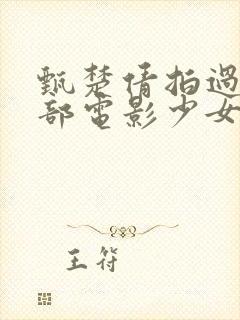 甄楚倩拍過
部電影少女
王符